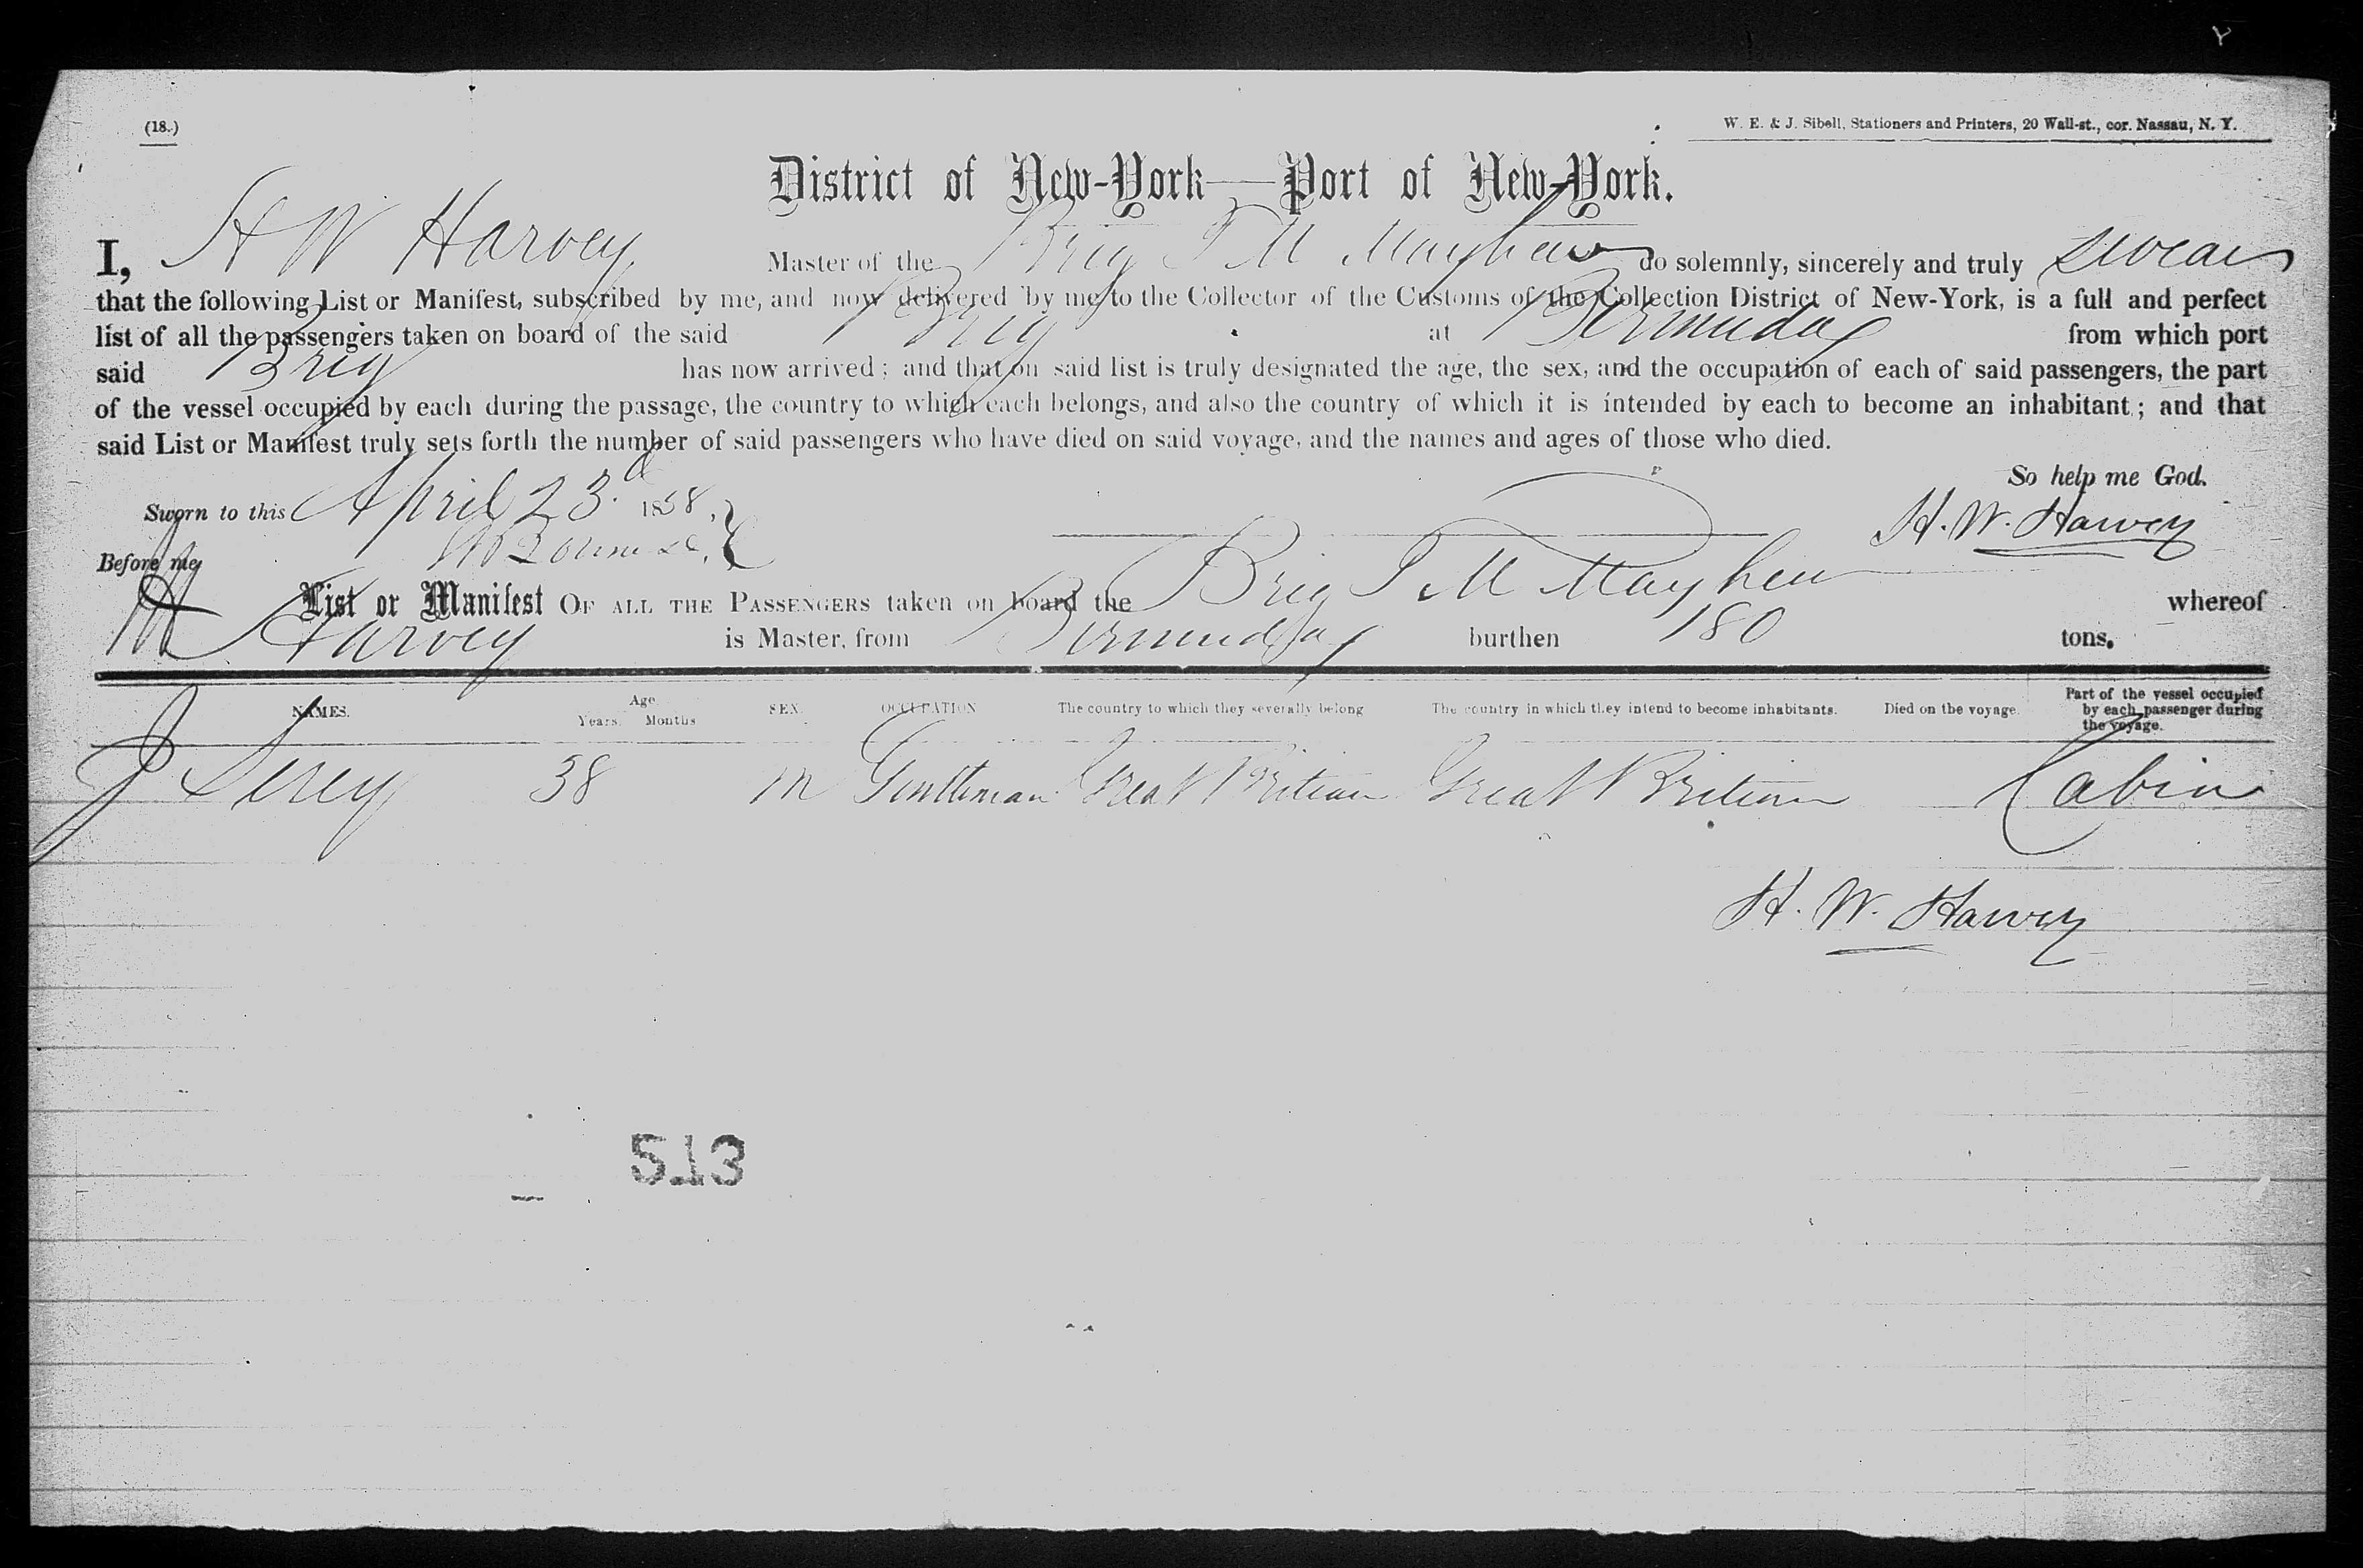 (18.)
W. E. & J. Sibell, Stationers and Printers, 20 Wall-st., cor. Nassau, N. Y.
District of New-York—Port of New-York.
I, H W Harvey Master of the Brig T M Mayhew do solemnly, sincerely and truly swear
that the following List or Manifest, subscribed by me, and now delivered by me to the Collector of the Customs of the Collection District of New-York, is a full and perfect
list of all the passengers taken on board of the said Brig at Bermuda from which port
said Brig has now arrived; and that on said list is truly designated the age, the sex, and the occupation of each of said passengers, the part
of the vessel occupied by each during the passage, the country to which each belongs, and also the country of which it is intended by each to become an inhabitant; and that
said List or Manifest truly sets forth the number of said passengers who have died on said voyage, and the names and ages of those who died.
So help me God.
Sworn to this April 23d 1858,
H. W. Harvey
Before me
List or Manifest OF ALL THE PASSENGERS taken on board the Brig T M Mayhew whereof
Harvey is Master, from Bermuda burthen 180 tons.
NAMES. Age Years. Months SEX. OCCUPATION The country to which they severally belong The country in which they intend to become inhabitants. Died on the voyage. Part of the vessel occupied by each passenger during the voyage.
J 38 m Gentleman Great Britian Great Britian Cabin
H. W. Harvey
513